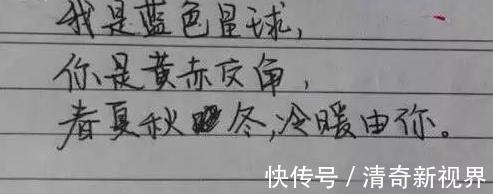 我是蓝色星球,
你是黄赤交角,
春夏秋冬,冷暖由你。
快传号/清奇新视界